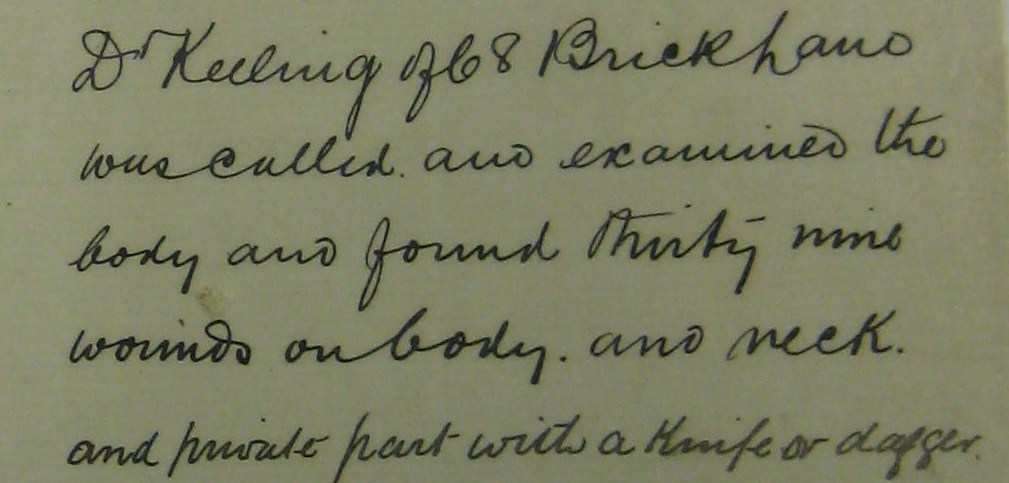 Dr Keeling of 68 Brick Lane
was called. and examined the
body and found thirty nine
wounds on body. and neck.
and private part with a knife or dagger.